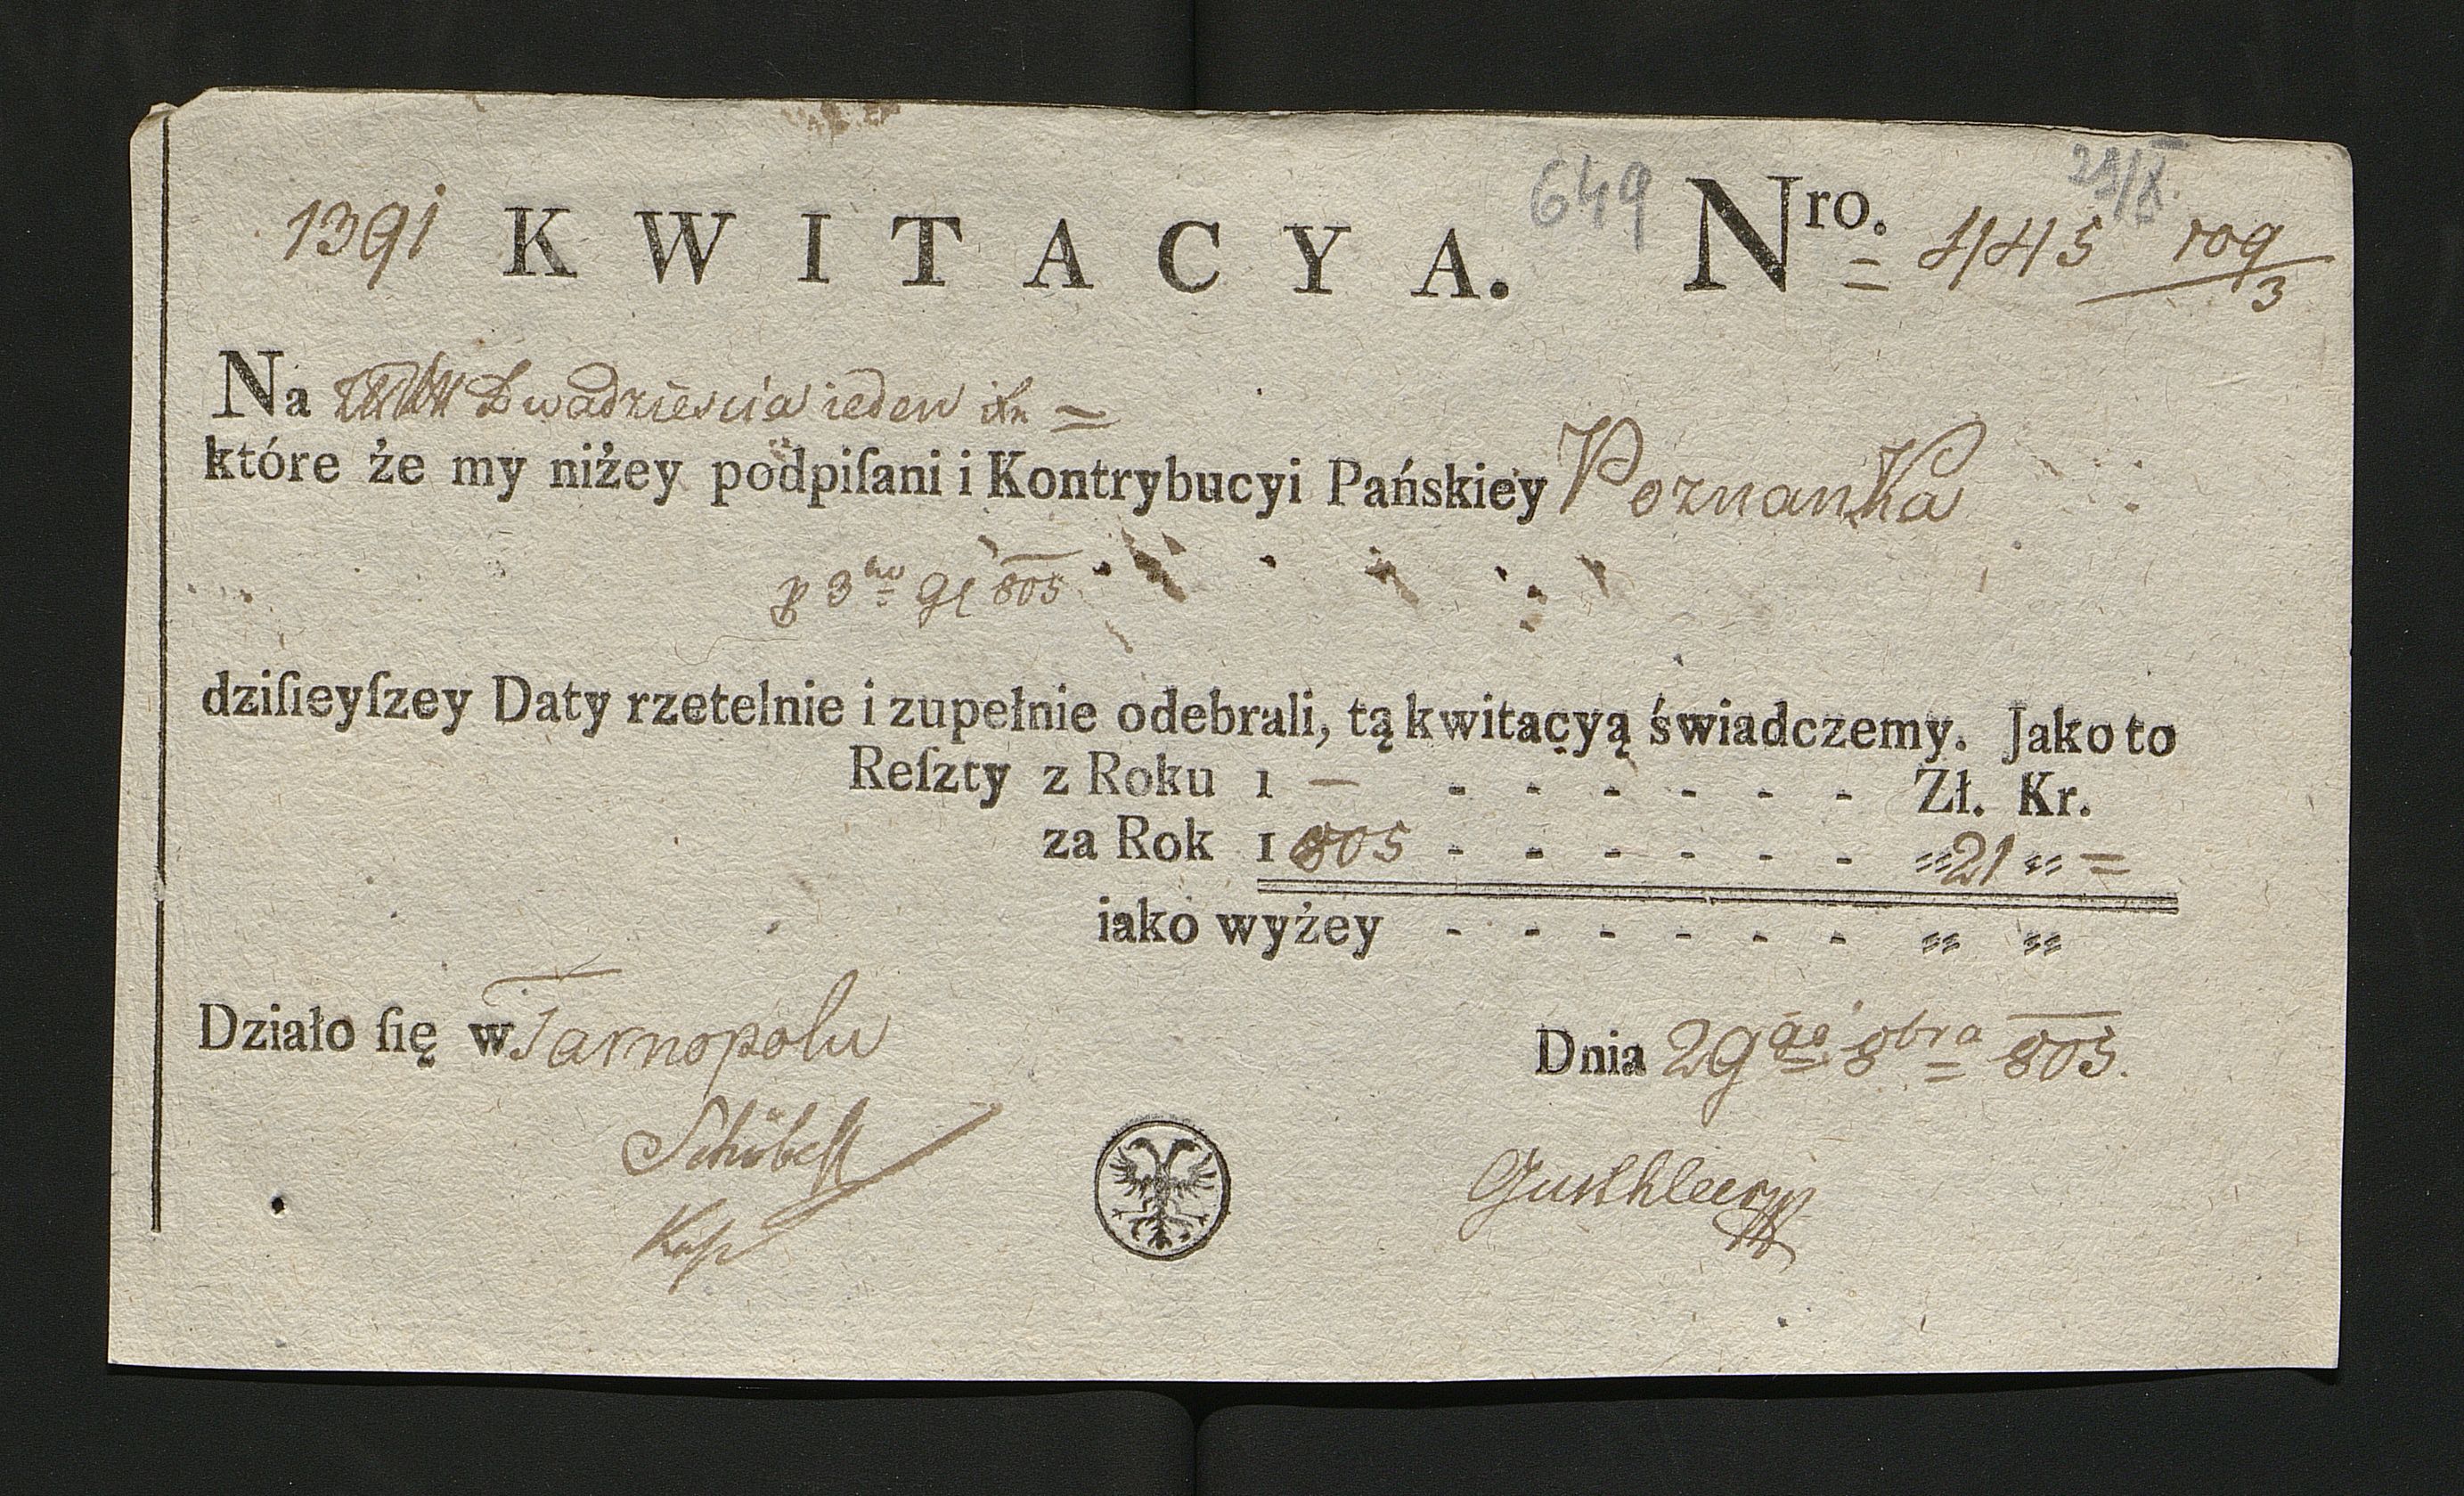 1391 KWITACYA. 649 Nro. 445 109/3
29/X.
Na Dwadzieścia ieden
które że my niżey podpiſani i Kontrybucyi Pańskiey Poznanka
3 805
dziſieyſzey Daty rzetelnie i zupełnie odebrali, tą kwitacyą świadczemy. Jako to
Reſzty z Roku 1 — - - - - - - Zł. Kr.
za Rok 1805 - - - - - - „ 21 „ =
iako wyżey - - - - - - „ „
Działo ſię w Tarnopolu Dnia 29go 8bra 805.